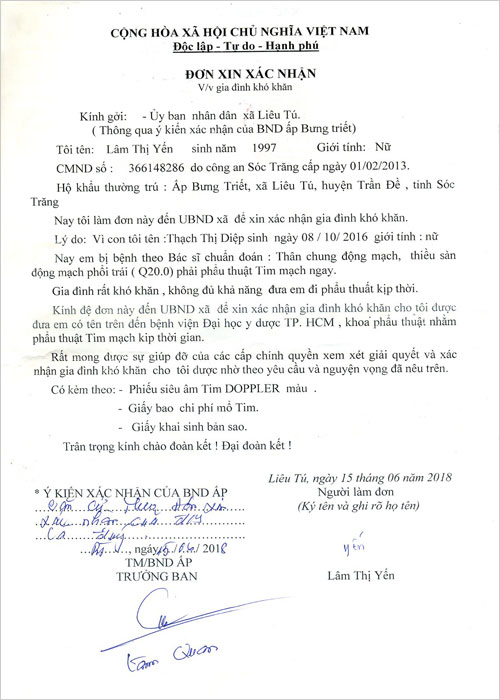 CỘNG HÒA XÃ HỘI CHỦ NGHĨA VIỆT NAM
Độc lập - Tự do - Hạnh phú
ĐƠN XIN XÁC NHẬN
V/v gia đình khó khăn
Kính gởi: - Ủy ban nhân dân xã Liêu Tú.
( Thông qua ý kiến xác nhận của BND ấp Bưng triết)
Tôi tên: Lâm Thị Yến sinh năm 1997 Giới tính: Nữ
CMND số : 366148286 do công an Sóc Trăng cấp ngày 01/02/2013.
Hộ khẩu thường trú : Ấp Bưng Triết, xã Liêu Tú, huyện Trần Đề , tỉnh Sóc
Trăng
Nay tôi làm đơn này đến UBND xã để xin xác nhận gia đình khó khăn.
Lý do: Vì con tôi tên :Thạch Thị Diệp sinh ngày 08 / 10/ 2016 giới tính : nữ
Nay em bị bệnh theo Bác sĩ chuẩn đoán : Thân chung động mạch, thiều sản
động mạch phổi trái ( Q20.0) phải phẩu thuật Tim mạch ngay.
Gia đình rất khó khăn , không đủ khả năng đưa em đi phẩu thuất kịp thời.
Kính đệ đơn này đến UBND xã để xin xác nhận gia đình khó khăn cho tôi được
đưa em có tên trên đến bệnh viện Đại học y dược TP. HCM , khoa phẩu thuật nhằm
phẩu thuật Tim mạch kịp thời gian.
Rất mong được sự giúp đỡ của các cấp chính quyền xem xét giải quyết và xác
nhận gia đình khó khăn cho tôi được nhờ theo yêu cầu và nguyện vọng đã nêu trên.
Có kèm theo: - Phiếu siêu âm Tim DOPPLER màu .
- Giấy bao chi phí mổ Tim.
- Giấy khai sinh bản sao.
Trân trọng kính chào đoàn kết ! Đại đoàn kết !
Liêu Tú, ngày 15 tháng 06 năm 2018
* Ý KIẾN XÁC NHẬN CỦA BND ẤP
Người làm đơn
(Ký tên và ghi rõ họ tên)
ngày 15/06/ 2018
TM/BND ẤP
TRƯỞNG BAN
yến
Lâm Thị Yến